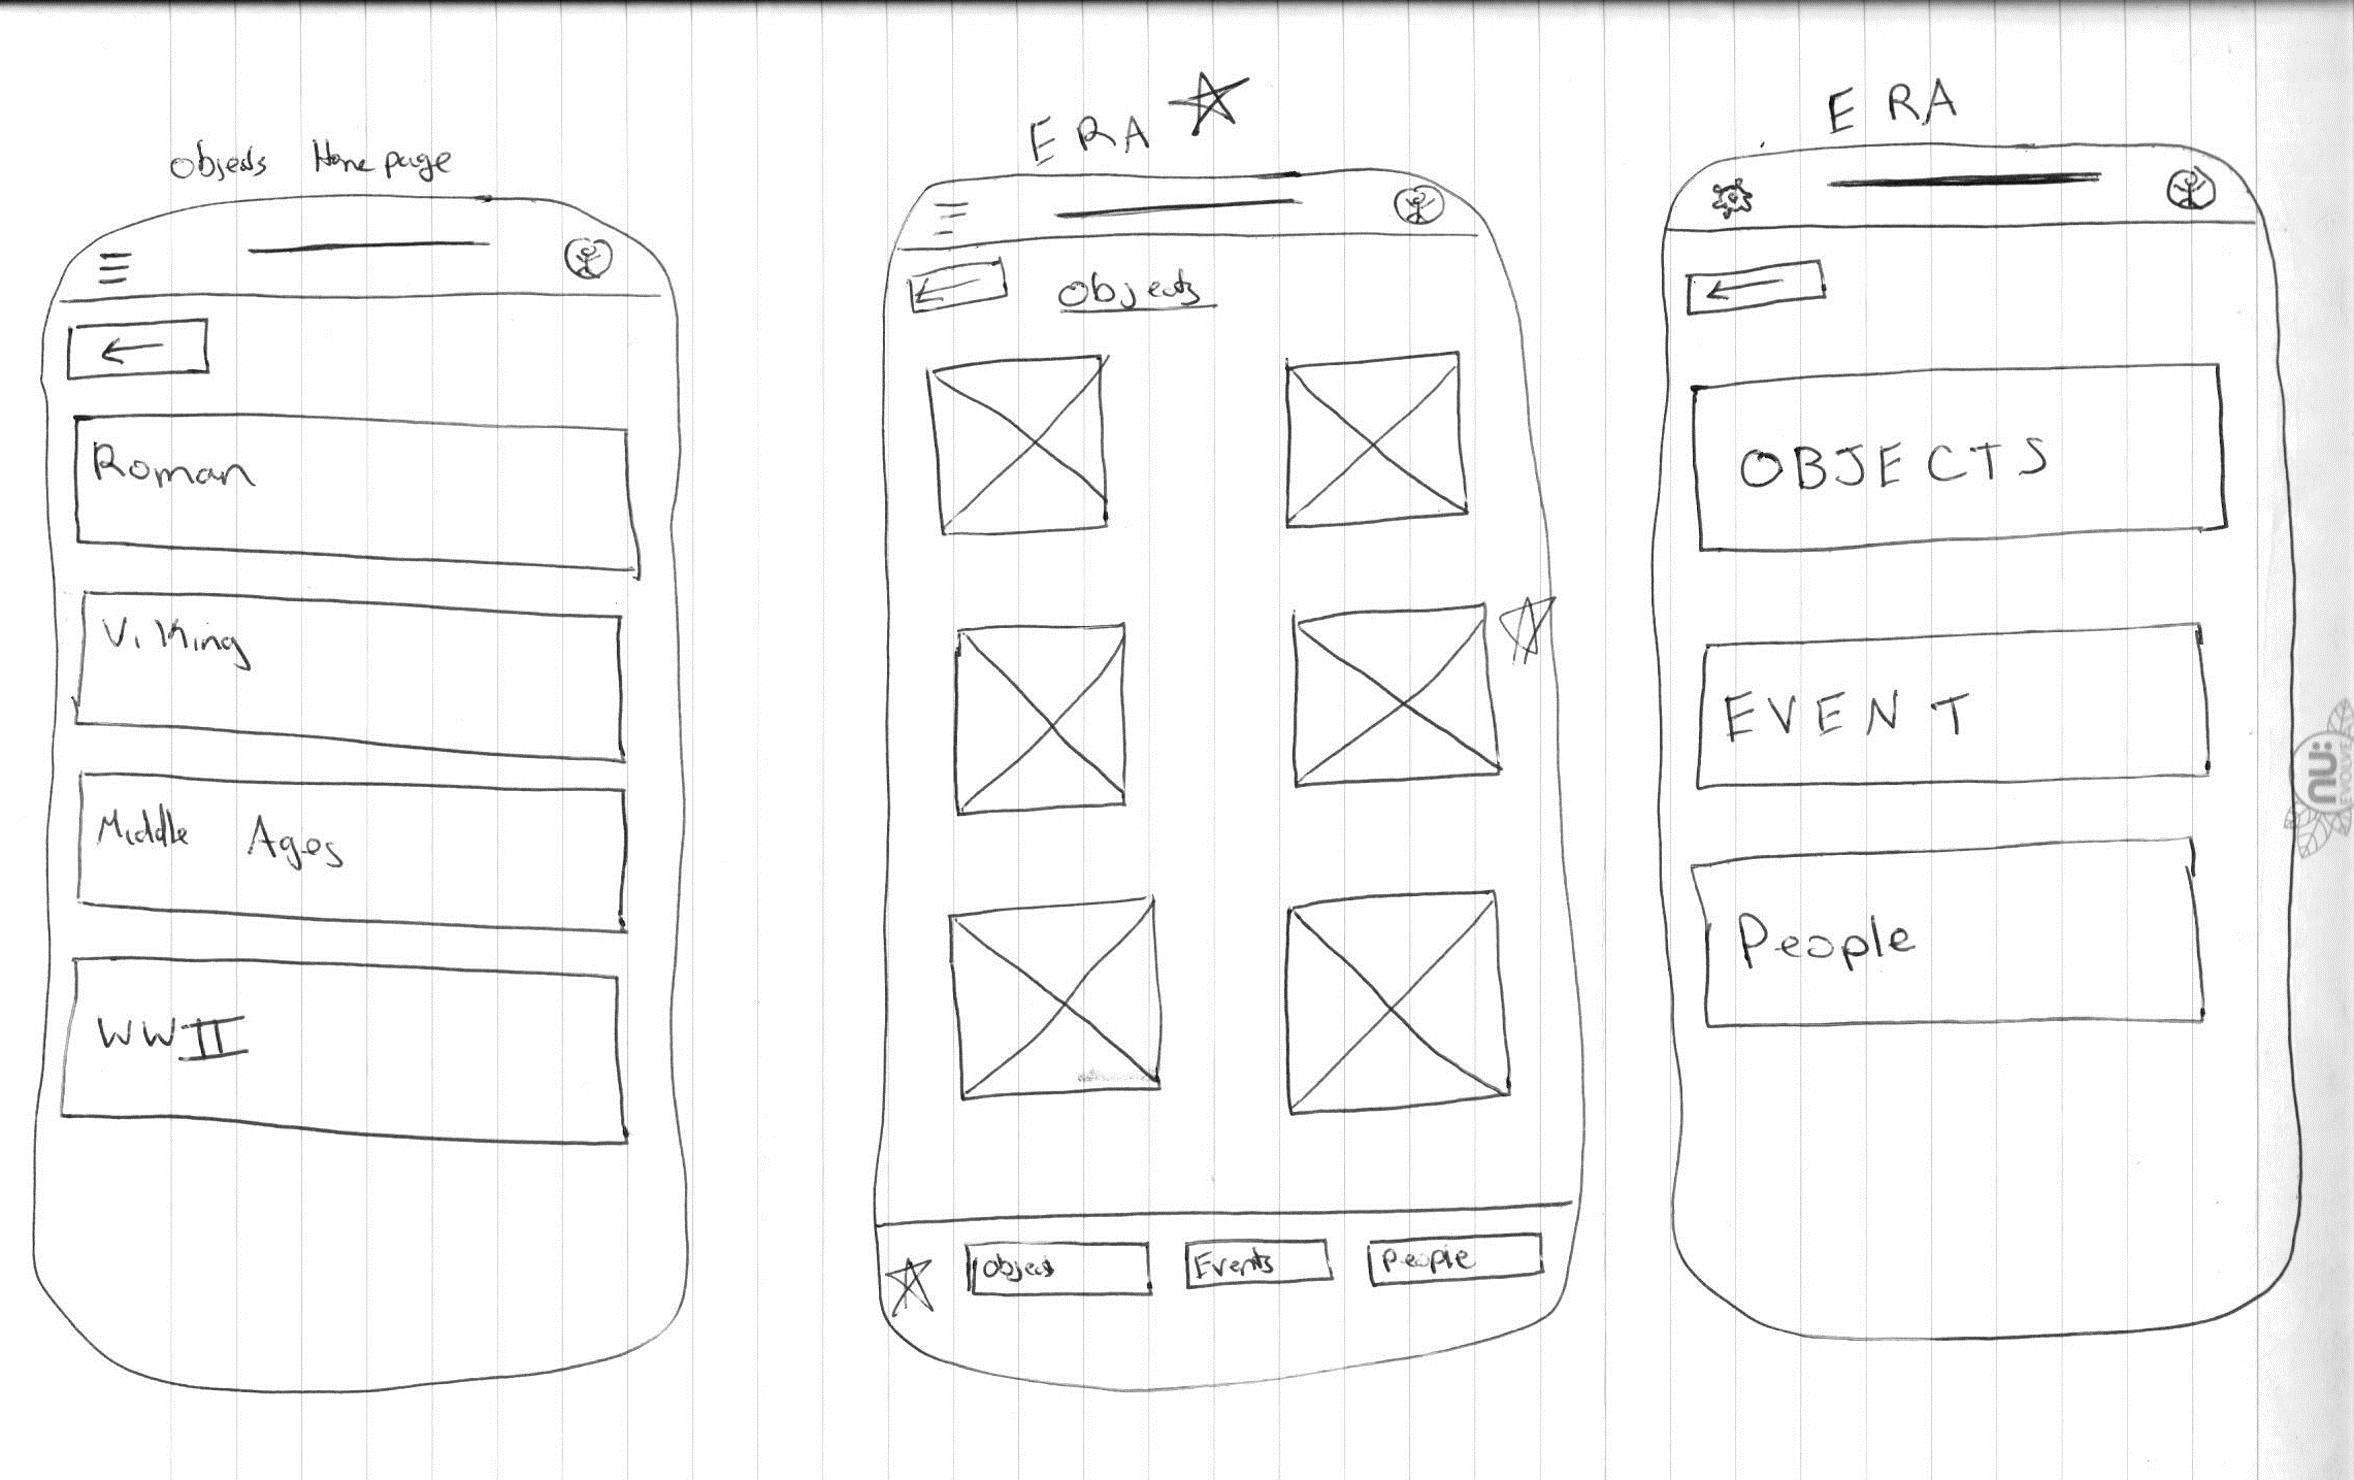 Objects Home page
Roman
Viking
Middle Ages
WWII
ERA
Objects
Object
Events
People
ERA
OBJECTS
EVENT
People
nu:
EVOLVE